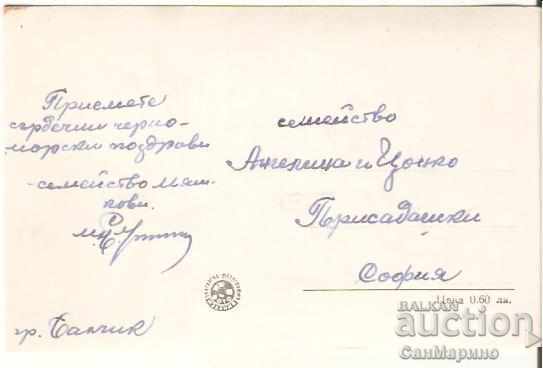 Приемете
сърдечни черно-
морски поздрави
-семейство Мяш-
кови.
гр. Балчик
семейство
Ангелица и Цонко
Персадашки
София
Цена 0.60 лв.
BALKAN
auction
СанМарино